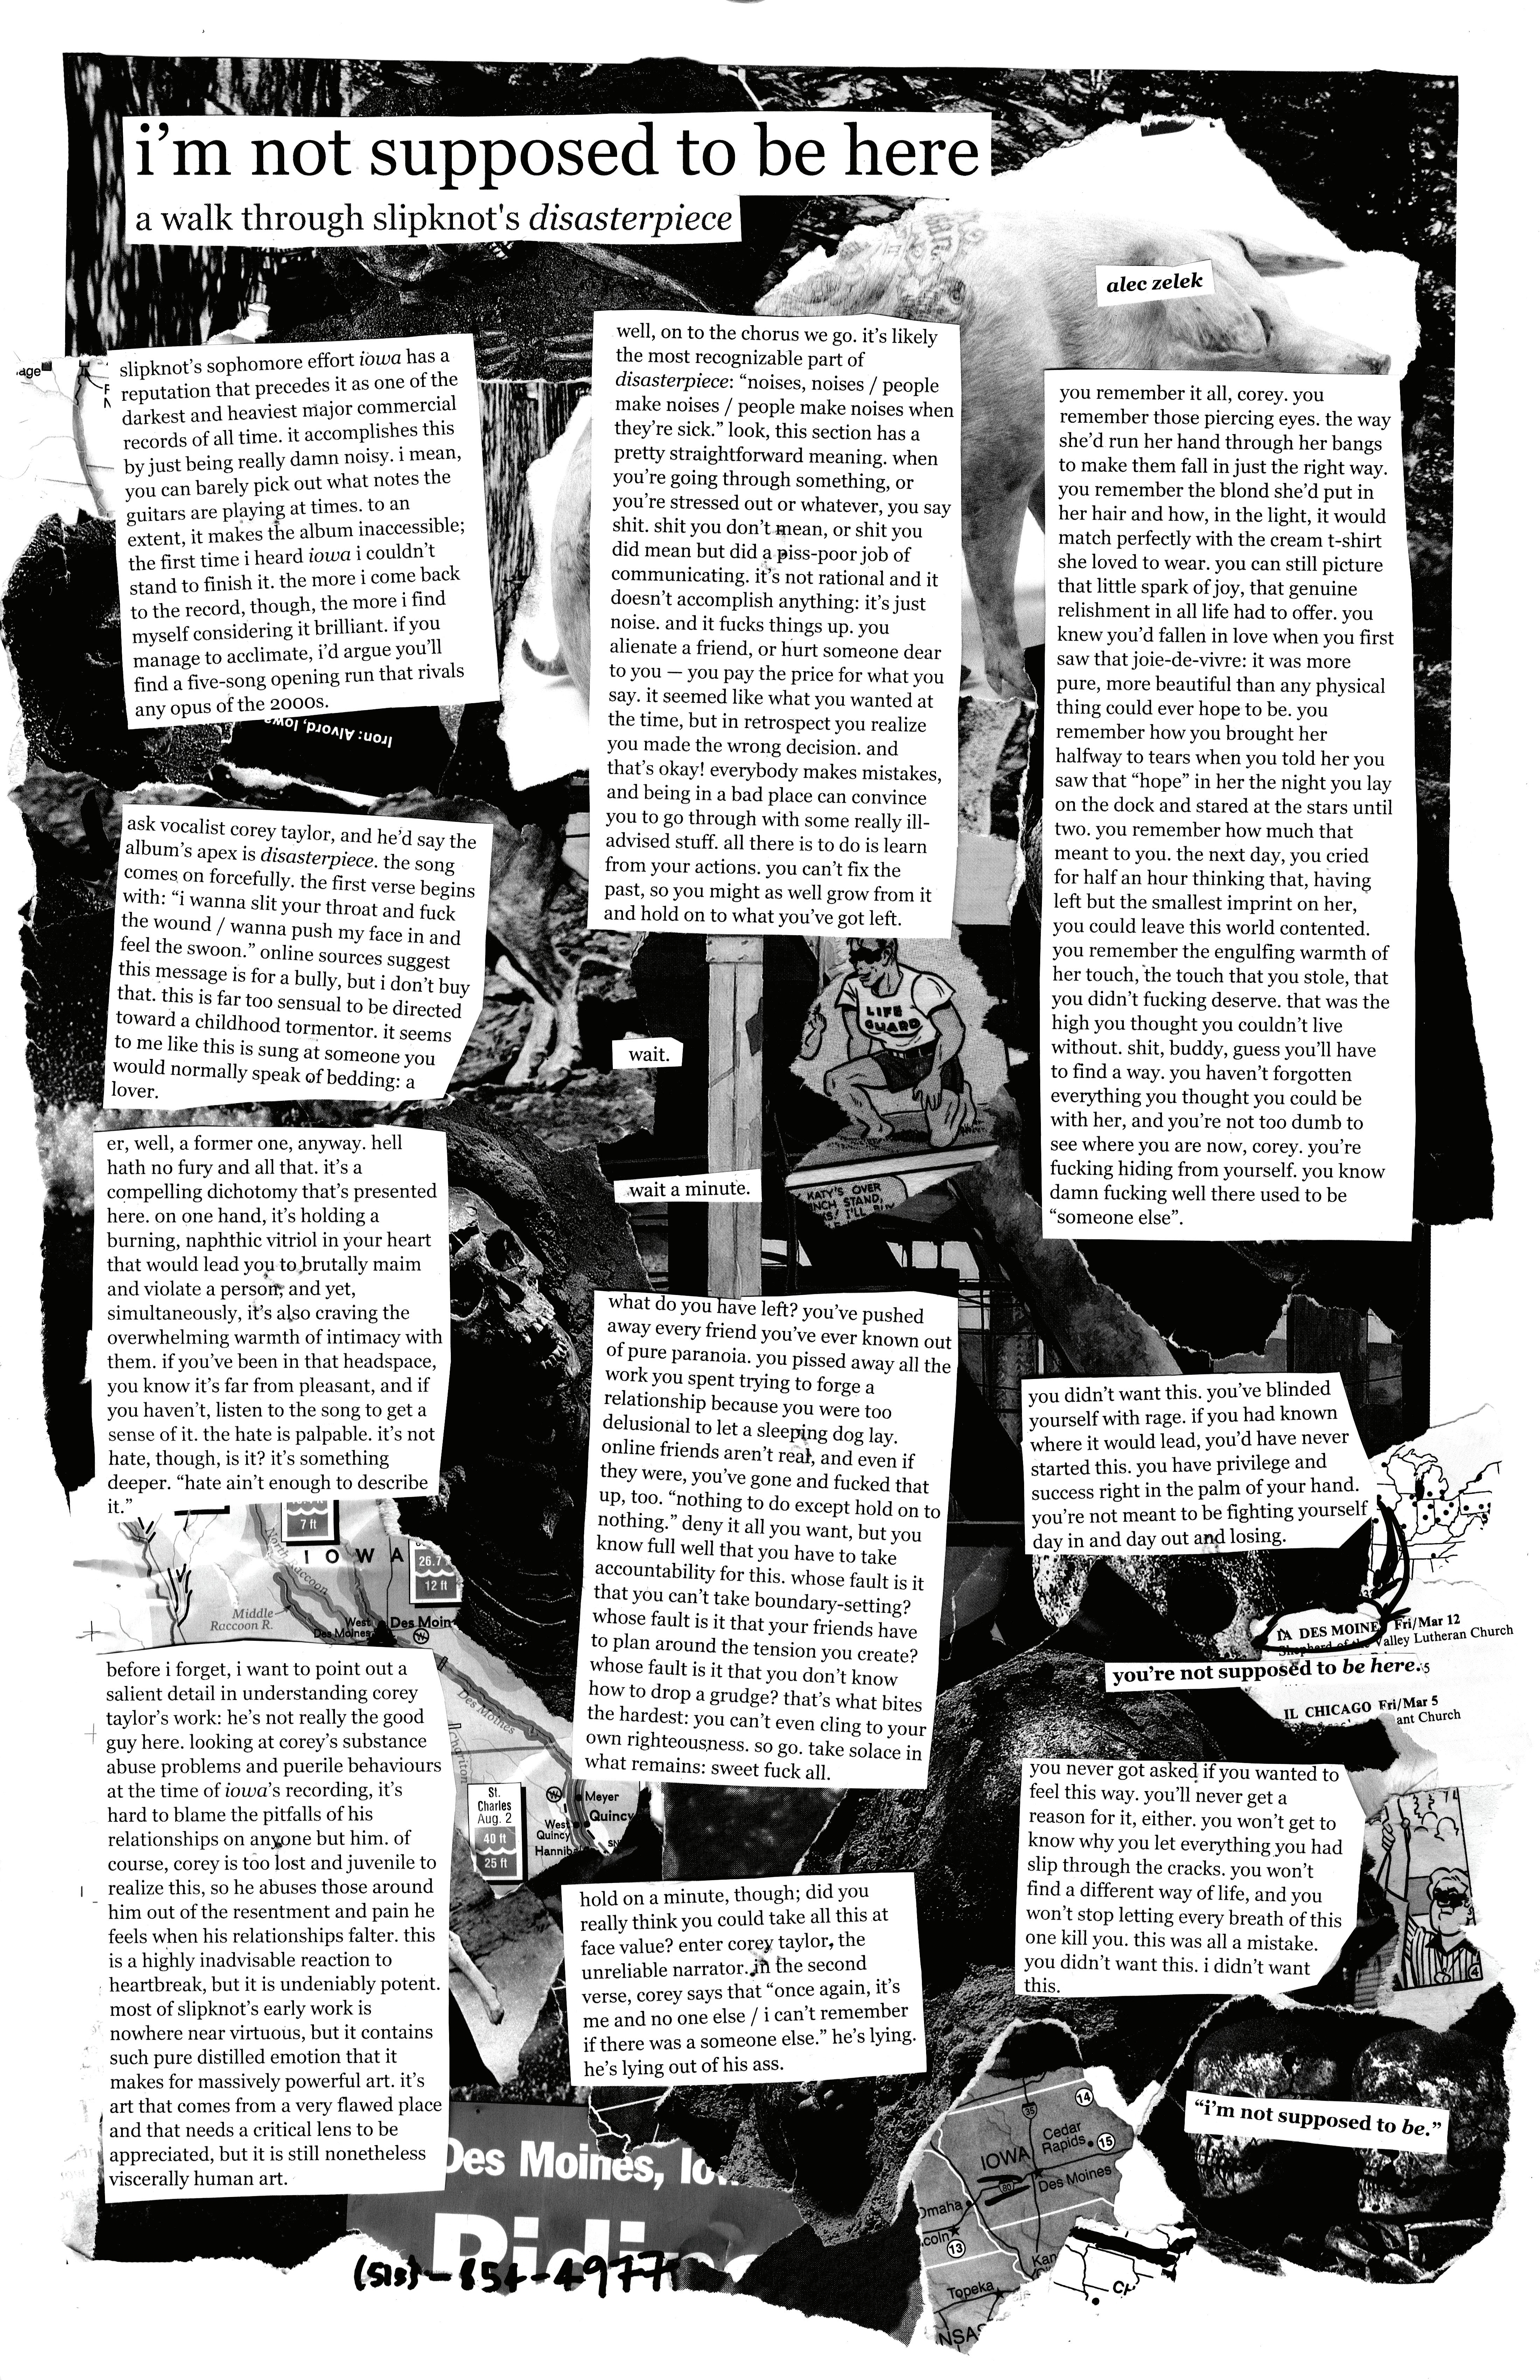 i'm not supposed to be here
a walk through slipknot's disasterpiece
alec zelek
age
slipknot's sophomore effort iowa has a
reputation that precedes it as one of the
darkest and heaviest major commercial
records of all time. it accomplishes this
by just being really damn noisy. i mean,
you can barely pick out what notes the
guitars are playing at times. to an
extent, it makes the album inaccessible;
the first time i heard iowa i couldn't
stand to finish it. the more i come back
to the record, though, the more i find
myself considering it brilliant. if you
manage to acclimate, i'd argue you'll
find a five-song opening run that rivals
any opus of the 2000s.
Iron: Alvord, Iowa
ask vocalist corey taylor, and he'd say the
album's apex is disasterpiece. the song
comes on forcefully. the first verse begins
with: “i wanna slit your throat and fuck
the wound / wanna push my face in and
feel the swoon.” online sources suggest
this message is for a bully, but i don't buy
that. this is far too sensual to be directed
toward a childhood tormentor. it seems
to me like this is sung at someone you
would normally speak of bedding: a
lover.
er, well, a former one, anyway. hell
hath no fury and all that. it's a
compelling dichotomy that's presented
here. on one hand, it's holding a
burning, naphthic vitriol in your heart
that would lead you to brutally maim
and violate a person, and yet,
simultaneously, it's also craving the
overwhelming warmth of intimacy with
them. if you've been in that headspace,
you know it's far from pleasant, and if
you haven't, listen to the song to get a
sense of it. the hate is palpable. it's not
hate, though, is it? it's something
deeper. “hate ain't enough to describe
it.”
7 ft
IOWA
26.7
12 ft
North Raccoon
Middle
Raccoon R.
West
Des Moines
Des Moin
Des Moines
before i forget, i want to point out a
salient detail in understanding corey
taylor's work: he's not really the good
guy here. looking at corey's substance
abuse problems and puerile behaviours
at the time of iowa's recording, it's
hard to blame the pitfalls of his
relationships on anyone but him. of
course, corey is too lost and juvenile to
realize this, so he abuses those around
him out of the resentment and pain he
feels when his relationships falter. this
is a highly inadvisable reaction to
heartbreak, but it is undeniably potent.
most of slipknot's early work is
nowhere near virtuous, but it contains
such pure distilled emotion that it
makes for massively powerful art. it's
art that comes from a very flawed place
and that needs a critical lens to be
appreciated, but it is still nonetheless
viscerally human art.
St.
Charles
Aug. 2
40 ft
25 ft
Meyer
Quincy
West
Quincy
Hanniba
Des Moines, Io
Riding
(515)-854-4977
well, on to the chorus we go. it's likely
the most recognizable part of
disasterpiece: “noises, noises / people
make noises / people make noises when
they're sick.” look, this section has a
pretty straightforward meaning. when
you're going through something, or
you're stressed out or whatever, you say
shit. shit you don't mean, or shit you
did mean but did a piss-poor job of
communicating. it's not rational and it
doesn't accomplish anything: it's just
noise. and it fucks things up. you
alienate a friend, or hurt someone dear
to you — you pay the price for what you
say. it seemed like what you wanted at
the time, but in retrospect you realize
you made the wrong decision. and
that's okay! everybody makes mistakes,
and being in a bad place can convince
you to go through with some really ill-
advised stuff. all there is to do is learn
from your actions. you can't fix the
past, so you might as well grow from it
and hold on to what you've got left.
LIFE
GUARD
KATY'S OVER
NCH STAND,
I'LL BUY
wait.
wait a minute.
what do you have left? you've pushed
away every friend you've ever known out
of pure paranoia. you pissed away all the
work you spent trying to forge a
relationship because you were too
delusional to let a sleeping dog lay.
online friends aren't real, and even if
they were, you've gone and fucked that
up, too. “nothing to do except hold on to
nothing.” deny it all you want, but you
know full well that you have to take
accountability for this. whose fault is it
that you can't take boundary-setting?
whose fault is it that your friends have
to plan around the tension you create?
whose fault is it that you don't know
how to drop a grudge? that's what bites
the hardest: you can't even cling to your
own righteousness. so go. take solace in
what remains: sweet fuck all.
hold on a minute, though; did you
really think you could take all this at
face value? enter corey taylor, the
unreliable narrator. in the second
verse, corey says that “once again, it's
me and no one else / i can't remember
if there was a someone else.” he's lying.
he's lying out of his ass.
you remember it all, corey. you
remember those piercing eyes. the way
she'd run her hand through her bangs
to make them fall in just the right way.
you remember the blond she'd put in
her hair and how, in the light, it would
match perfectly with the cream t-shirt
she loved to wear. you can still picture
that little spark of joy, that genuine
relishment in all life had to offer. you
knew you'd fallen in love when you first
saw that joie-de-vivre: it was more
pure, more beautiful than any physical
thing could ever hope to be. you
remember how you brought her
halfway to tears when you told her you
saw that “hope” in her the night you lay
on the dock and stared at the stars until
two. you remember how much that
meant to you. the next day, you cried
for half an hour thinking that, having
left but the smallest imprint on her,
you could leave this world contented.
you remember the engulfing warmth of
her touch, the touch that you stole, that
you didn't fucking deserve. that was the
high you thought you couldn't live
without. shit, buddy, guess you'll have
to find a way. you haven't forgotten
everything you thought you could be
with her, and you're not too dumb to
see where you are now, corey. you're
fucking hiding from yourself. you know
damn fucking well there used to be
“someone else”.
you didn't want this. you've blinded
yourself with rage. if you had known
where it would lead, you'd have never
started this. you have privilege and
success right in the palm of your hand.
you're not meant to be fighting yourself
day in and day out and losing.
IA DES MOINE Fri/Mar 12
Shepherd of the Valley Lutheran Church
you're not supposed to be here.
IL CHICAGO Fri/Mar 5
ant Church
you never got asked if you wanted to
feel this way. you'll never get a
reason for it, either. you won't get to
know why you let everything you had
slip through the cracks. you won't
find a different way of life, and you
won't stop letting every breath of this
one kill you. this was all a mistake.
you didn't want this. i didn't want
this.
4
“i'm not supposed to be.”
14
35
Cedar
Rapids
15
IOWA
80
Des Moines
Omaha
coln
13
Kan
Topeka
NSAS